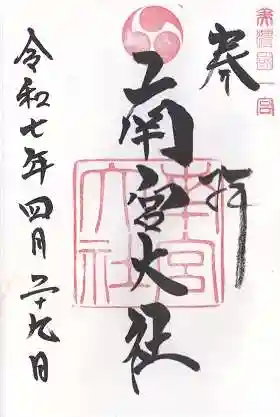 美濃國一宮
奉拝
南宮大社
南宮大社
令和七年四月二十九日